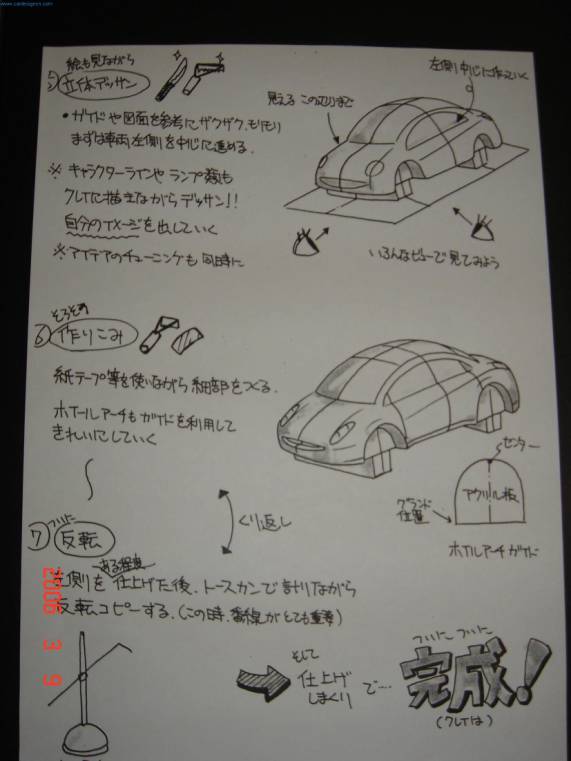 www.cardesignerx.com
絵も見ながら
⑤ 立体デッサン
・ガイドや図面を参考にザクザク、モリモリ
まずは車両左側を中心に進める.
※ キャラクターラインやランプ類も
クレイに描きながらデッサン!!
自分のイメージを出していく
※アイデアのチューニングも同時に
左側中心に作っていく
見える この辺りまで
いろんなビューで見てみよう
そろそろ
⑥ 作りこみ
紙テープ等を使いながら細部をつくる.
ホイールアーチもガイドを利用して
きれいにしていく
くり返し
センター
アクリル板
グランド
位置
ホイルアーチガイド
ついに
⑦ 反転
ある程度
左側を仕上げた後、トースカンで計りながら
反転コピーする.(この時、番線がとても重要)
2006 3 9
そして
仕上げ
しまくり
で…
ついに ついに
完成!
(クレイは)